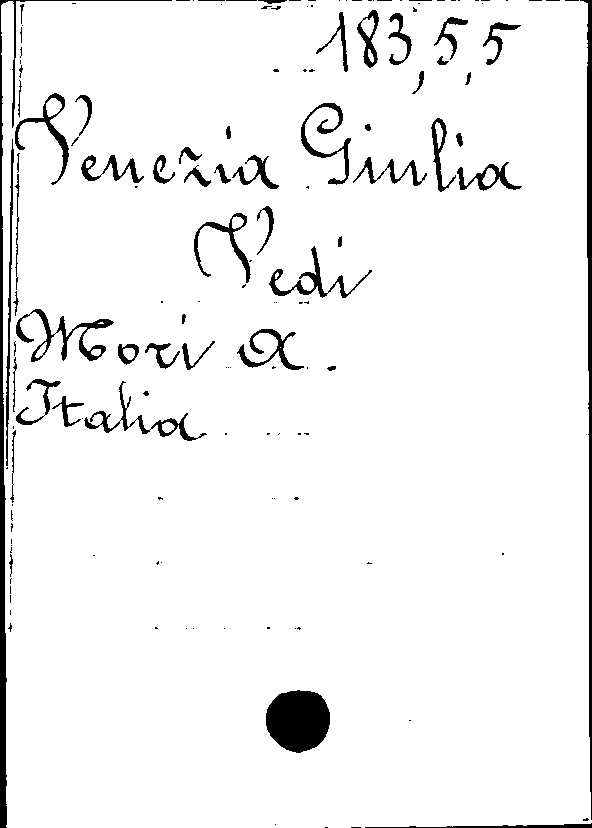 183,5,5
Venezia Giulia
Vedi
Mori A.
Italia